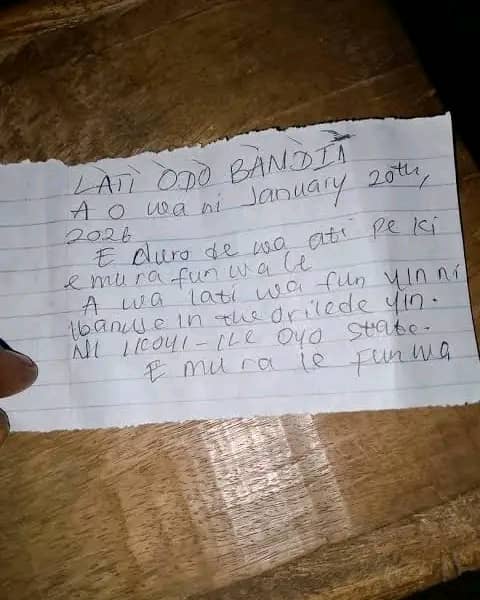 LÀTÌ ÒDÒ BÀNDÍÌ
A O wa ni January 20th,
2026
E duro de wa ati pe ki
e mura fun wa le
A wa lati wa fun yin ni
in the orilede yin.
NI IKOYI-ILE OYO State.
E mu ra le fun wa